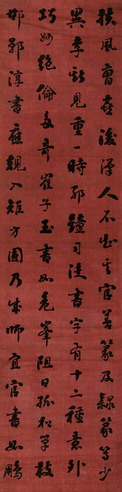 扶風曹喜後漢人不知其官善篆及隸篆少
異李斯見重一時鍾司徒書字有十二種意外
巧妙絕倫多奇崔子玉書如危峯阻日孤松單枝
邯鄲淳書應規入矩方圓乃成師宜官書如鵬